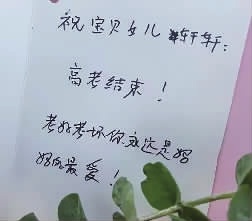 祝宝贝女儿轩轩:
高考结束!
考好考坏你永远是妈
妈的最爱!